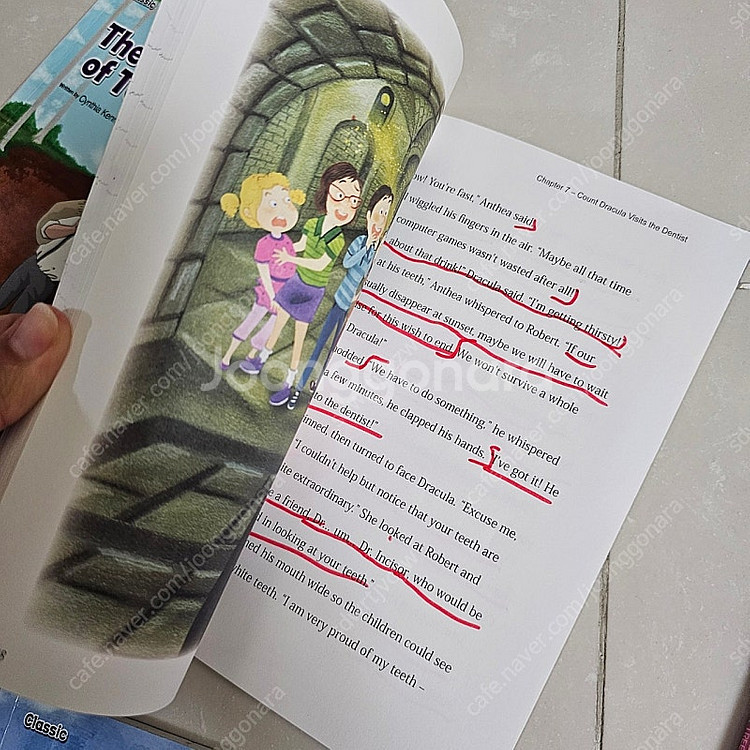 Classic
The
of T
Written by Cynthia Kenn
Chapter 7 – Count Dracula Visits the Dentist
ow! You're fast." Anthea said.
wiggled his fingers in the air. "Maybe all that time
computer games wasn't wasted after all!
about that drink!" Dracula said. "I'm getting thirsty!
at his teeth," Anthea whispered to Robert. "If our
sually disappear at sunset, maybe we will have to wait
for this wish to end. We won't survive a whole
Dracula!"
nodded. "We have to do something." he whispered
a few minutes, he clapped his hands. I've got it! He
to the dentist!"
inned, then turned to face Dracula. "Excuse me,
"I couldn't help but notice that your teeth are
ite extraordinary." She looked at Robert and
e a friend, Dr... um... Dr. Incisor, who would be
d in looking at your teeth."
ned his mouth wide so the children could see
white teeth. "I am very proud of my teeth –
8
Classic
Joonggonara
cafe.naver.com/joonggonara